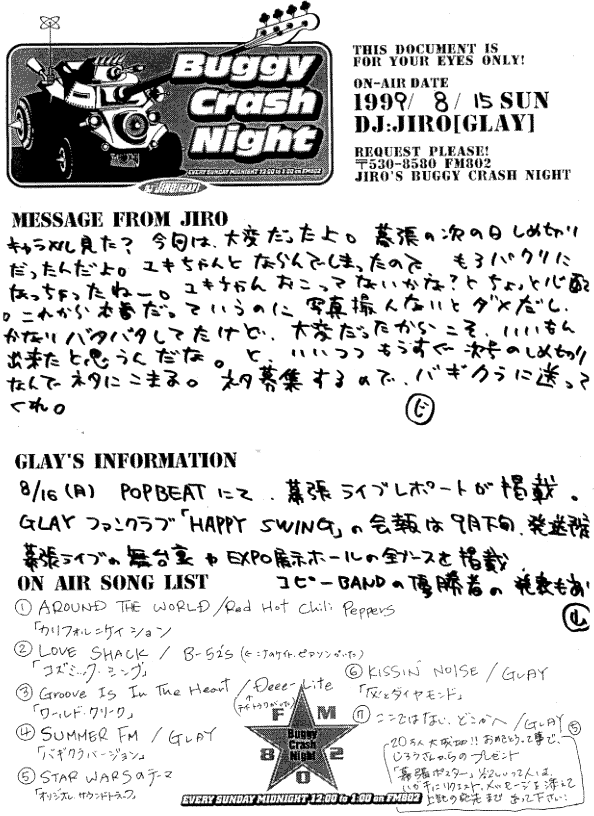 Buggy
Crash
Night
EVERY SUNDAY MIDNIGHT 12:00 to 1:00 on FM802
DJ JIRO[GLAY]
THIS DOCUMENT IS
FOR YOUR EYES ONLY!
ON-AIR DATE
1999/ 8/ 15 SUN
DJ:JIRO[GLAY]
REQUEST PLEASE!
〒530-8580 FM802
JIRO'S BUGGY CRASH NIGHT
MESSAGE FROM JIRO
キャラメル見た? 今回は、大変だったよ。幕張の次の日しめきり
だったんだよ。ユキちゃんとならんでしまったので もろパクリに
なっちゃったねー。ユキちゃんおこってないかな?とちょっと心配
。これから本番だっていうのに写真撮んないとダメだし、
かなりバタバタしてたけど、大変だったからこそ、いいもん
出来たと思うんだな。と、いいつつもうすぐ次号のしめきり
なんでネタにこまる。ネタ募集するので、バギクラに送って
くれ。 じ
GLAY'S INFORMATION
8/16(月) POPBEATにて、幕張ライブレポートが掲載。
GLAYファンクラブ「HAPPY SWING」の会報は9月下旬、発送
幕張ライブの舞台裏やEXPO展示ホールの全ブースを掲載、
コピーBANDの優勝者の発表もあ
ON AIR SONG LIST
① AROUND THE WORLD / Red Hot Chili Peppers
「カリフォルニケイション」
② LOVE SHACK / B-52's
「コズミック・シング」
③ Groove Is In The Heart / Deee-Lite
「ワールド・クリーク」
④ SUMMER FM / GLAY
「バギクラバージョン」
⑤ STAR WARSのテーマ
「オリジナル・サウンドトラック」
FM
802
Buggy
Crash
Night
EVERY SUNDAY MIDNIGHT 12:00 to 1:00 on FM802
⑥ KISSIN' NOISE / GLAY
「灰とダイヤモンド」
⑦ ここではない、どこかへ / GLAY
20万人大成功!! おめでとうって事で、
じろうさんからのプレゼント
「幕張ポスター」
ハガキにリクエスト、メッセージを添えて
上記の宛先まで 下さい!